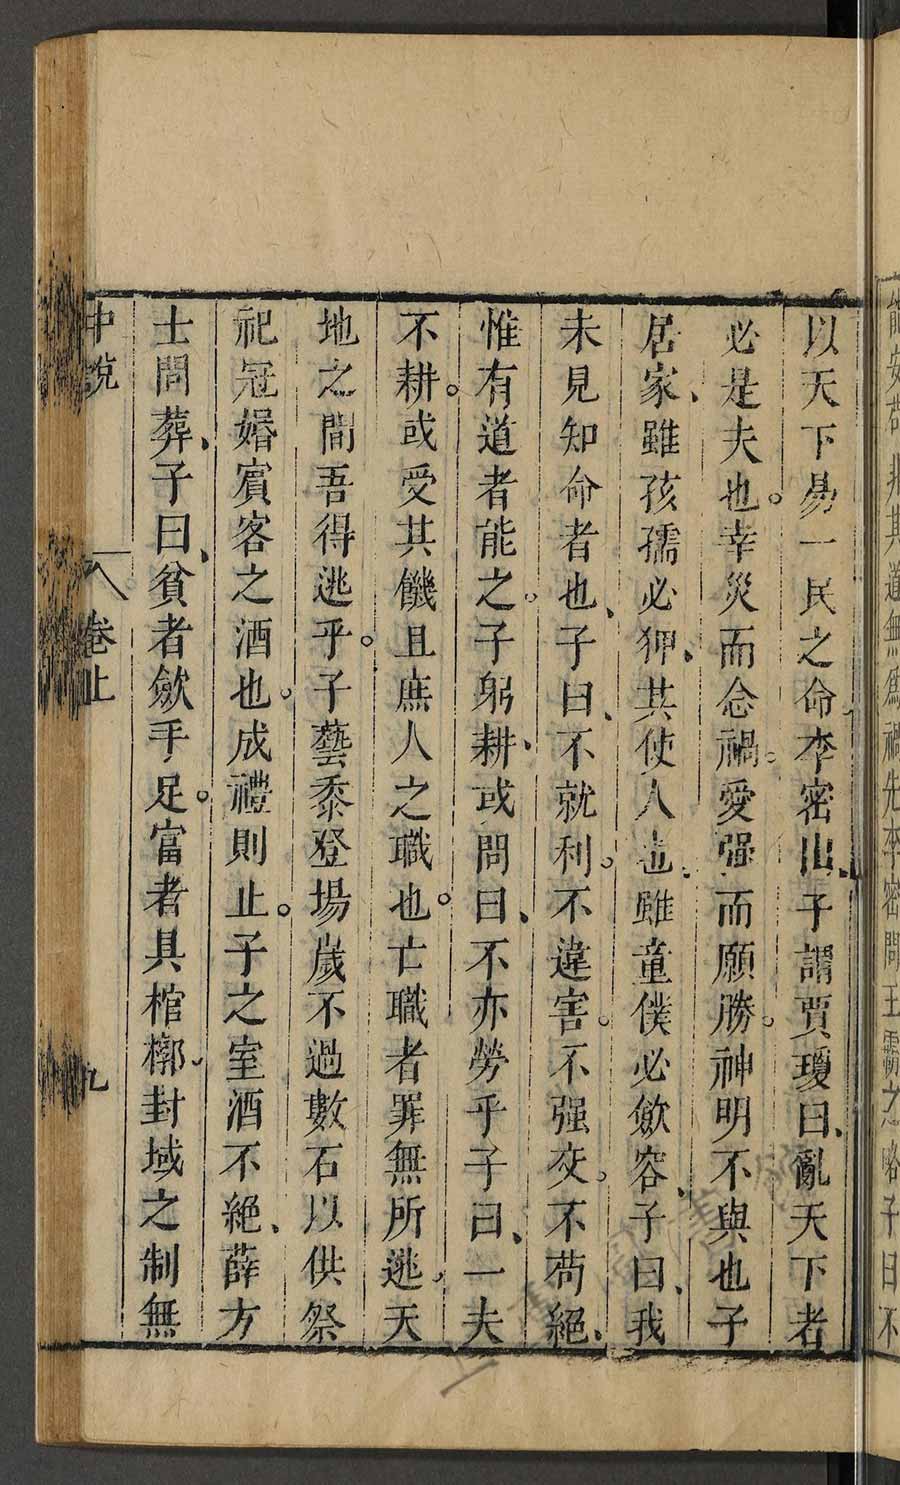 能安苟非其道無爲禍先李密問王霸之略子曰不
以天下易一民之命李密出子謂賈瓊曰亂天下者
必是夫也幸災而念禍愛强而願勝神明不與也子
居家雖孩孺必狎其使人也雖童僕必斂容子曰我
未見知命者也子曰不就利不違害不强交不苟絕
惟有道者能之子躬耕或問曰不亦勞乎子曰一夫
不耕或受其饑且庶人之職也亡職者罪無所逃天
地之間吾得逃乎子藝黍登場歲不過數石以供祭
祀冠婚賓客之酒也成禮則止子之室酒不絕薛方
士問葬子曰貧者斂手足富者具棺槨封域之制無
中說 卷上 九